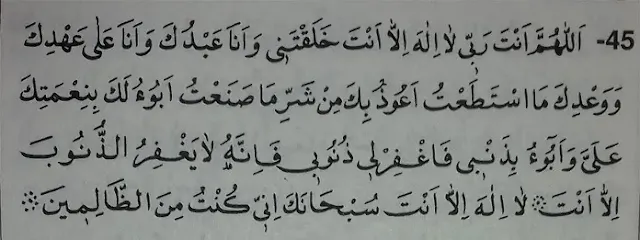 45- اَللّٰهُمَّ اَنْتَ رَبِّى لَا اِلٰهَ اِلَّا اَنْتَ خَلَقْتَنِى وَاَنَا عَبْدُكَ وَاَنَا عَلٰى عَهْدِكَ
وَوَعْدِكَ مَا اسْتَطَعْتُ اَعُوذُ بِكَ مِنْ شَرِّ مَا صَنَعْتُ اَبُوءُ لَكَ بِنِعْمَتِكَ
عَلَىَّ وَاَبُوءُ بِذَنْبِى فَاغْفِرْلِى ذُنُوبِى فَاِنَّهُ لَا يَغْفِرُ الذُّنُوبَ
اِلَّا اَنْتَ ۞ لَا اِلٰهَ اِلَّا اَنْتَ سُبْحَانَكَ اِنِّى كُنْتُ مِنَ الظَّالِمِينَ ۞